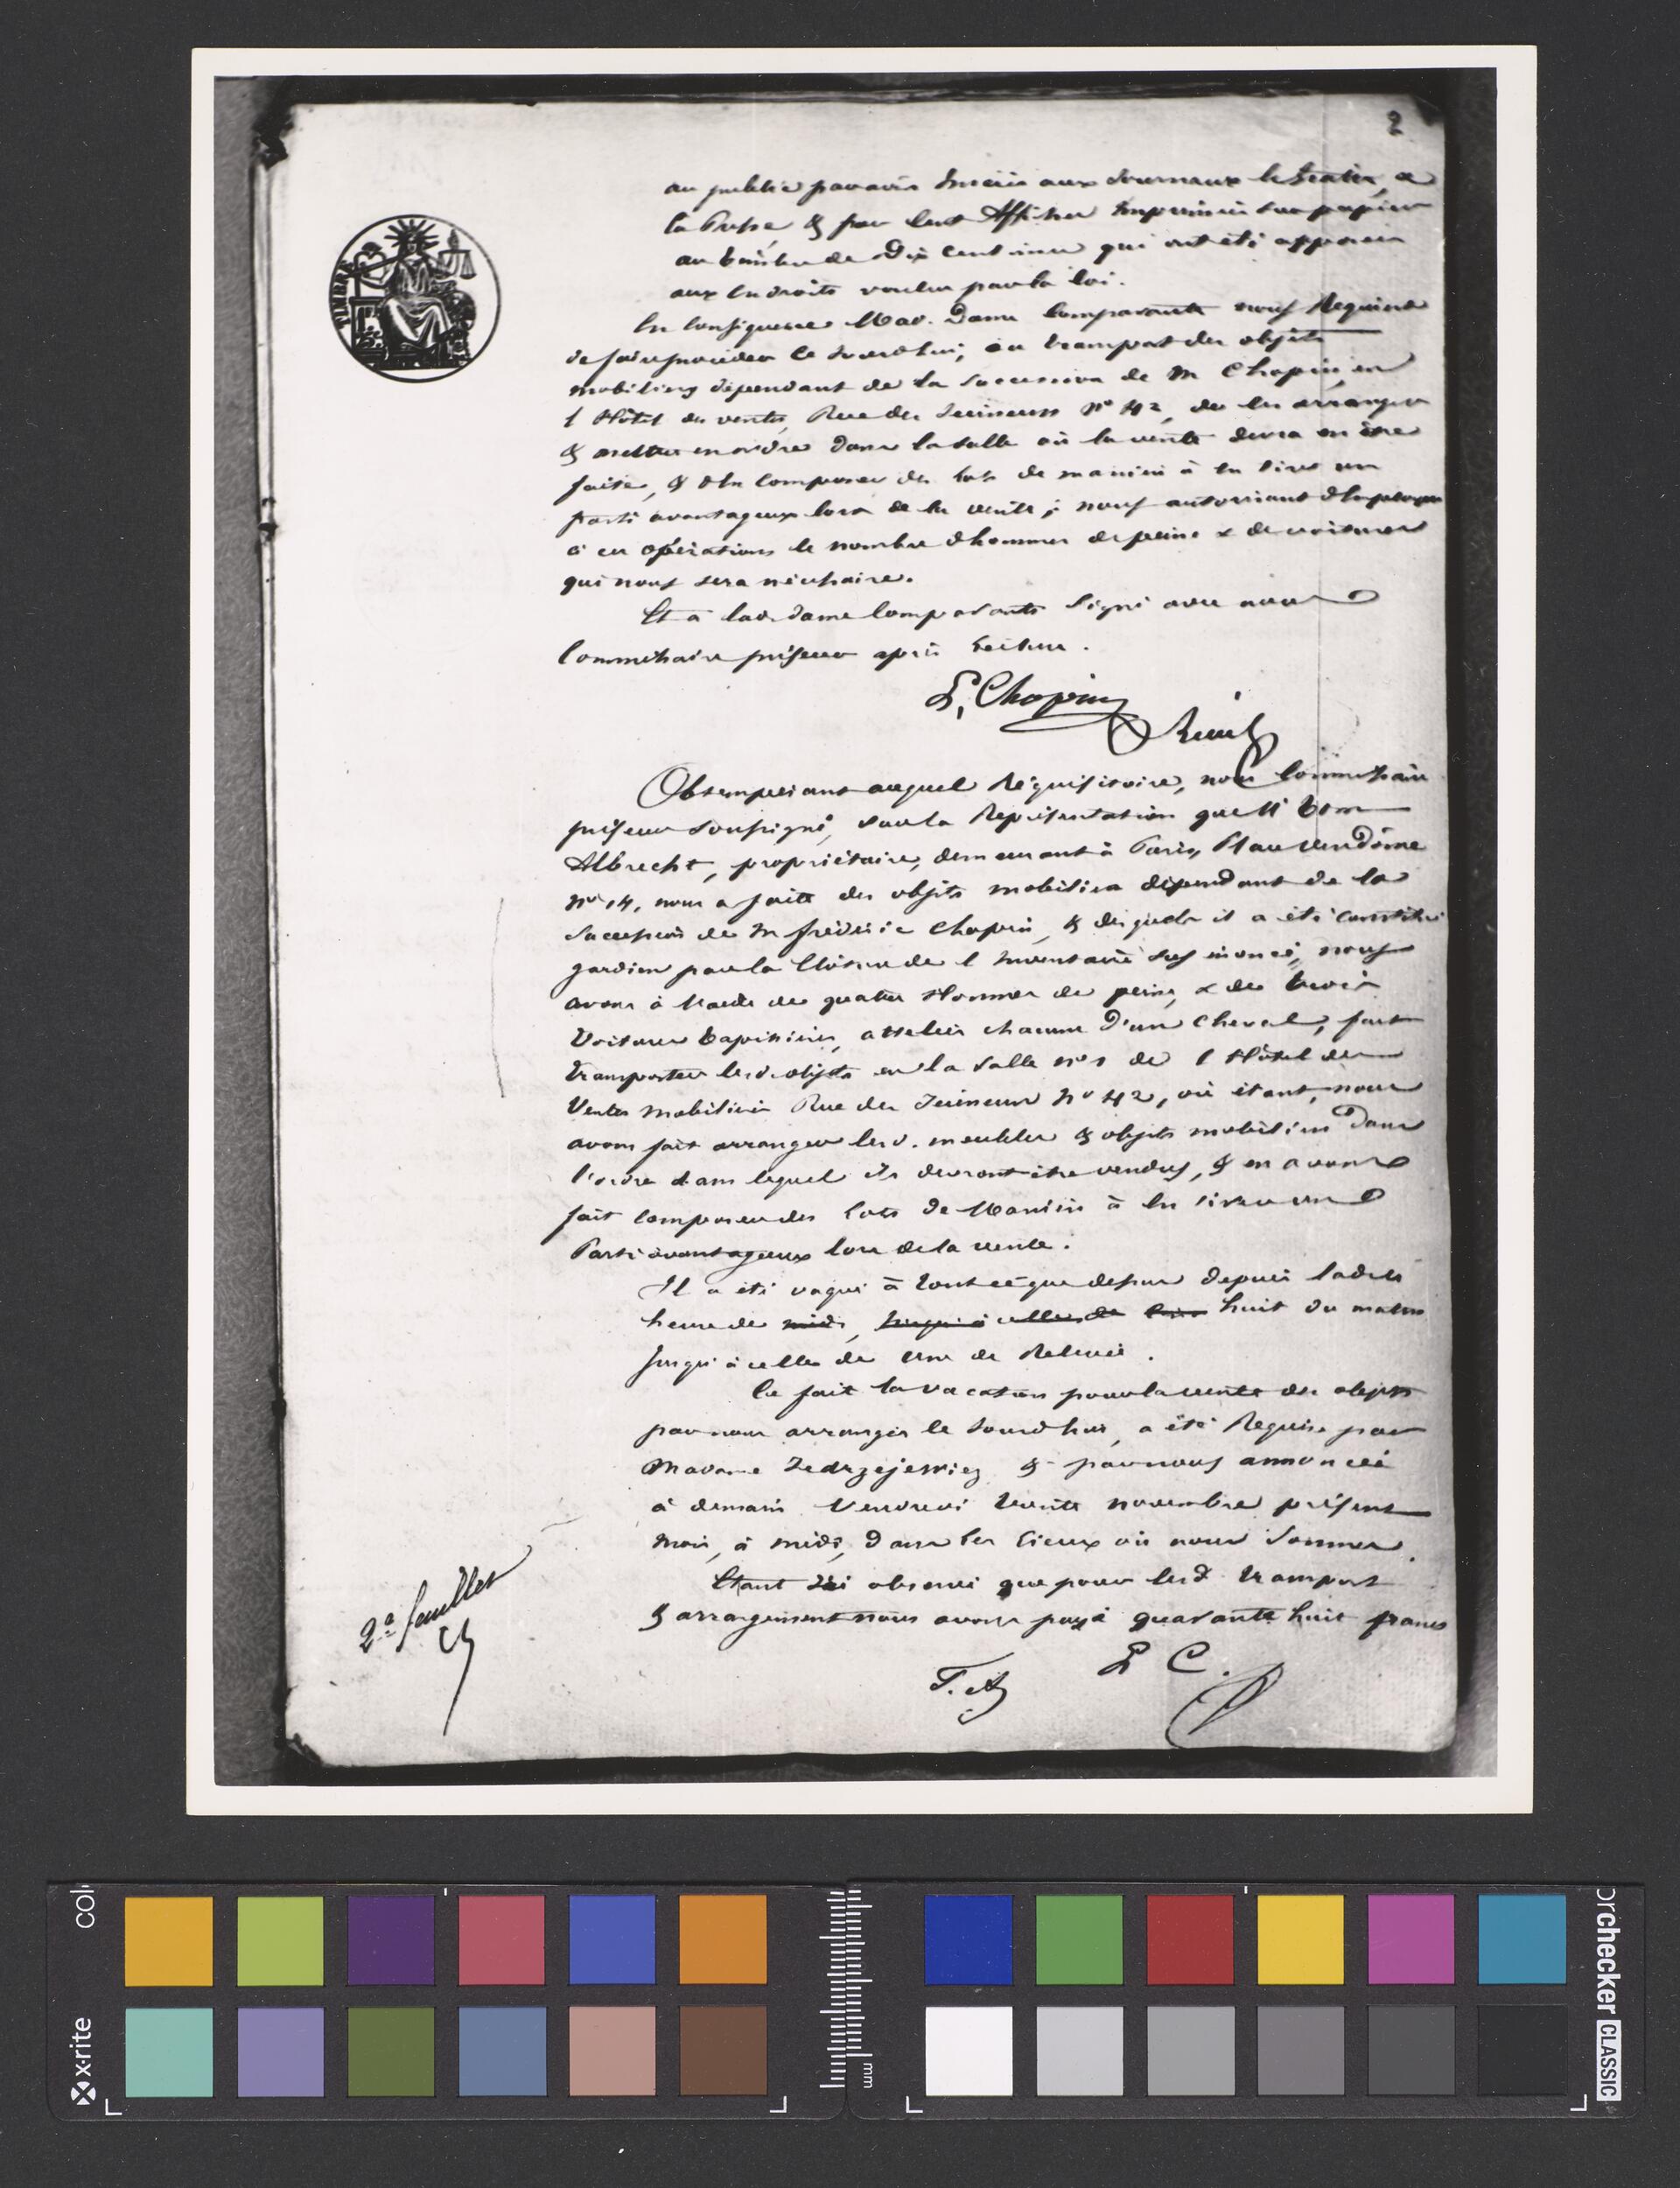 2
TIMBRE
au public par avis insérés aux Journaux le Siècle, &
la Presse & par cent Affiches Imprimées sur papier
au timbre de Dix centimes qui ont été apposées
aux Endroits voulus par la loi.
En conséquence Mad. Dame Comparante nous Requiert
de faire procéder ce Jourd'hui, au transport des objets
mobiliers dépendant de la succession de M Chopin, en
l Hôtel des ventes, Rue des Jeuneurs No 42, de les arranger
& mettre en ordre dans la salle où la vente devra en être
faite, & d'en composer des lots de manière à en tirer un
parti avantageux lors de la vente; nous autorisant d'Employer
à ces opérations le nombre d'hommes de peine & de voitures
qui nous sera nécessaire.
Et a lad. dame Comparante signé avec nous
Commissaire priseur après lecture.
L. Chopin
Obtempérant auquel Réquisitoire, nous Commissaire
priseur soussigné, sur la Représentation que M Tom
Albrecht, propriétaire, demeurant à Paris, Place Vendôme
No 14, nous a faite des objets mobiliers dépendant de la
succession de M frédéric Chopin, & desquels il a été constitué
gardien par la Clôture de l Inventaire sus énoncé, nous
avons à l'aide de quatre Hommes de peine, & de trois
Voitures tapissières, attelées chacune d'un cheval, fait
transporter lesd. objets en la salle No 1 de l Hôtel des
Ventes mobilières Rue des Jeuneurs No 42, où étant, nous
avons fait arranger lesd. meubles & objets mobiliers dans
l'ordre dans lequel ils devront être vendus, & en avons
fait composer des lots de Manière à en tirer un
Parti avantageux lors de la vente.
Il a été vaqué à tout ce que dessus depuis ladite
heure de midi, jusqu'à celle de huit du matin
jusqu'à celle de Une de Relevée.
Ce fait la vacation pour la vente des objets
par nous arrangés ce Jourd'hui, a été Requise par
Madame Jedrzejewicz & par nous annoncée
à demain Vendredi trente novembre présent
mois, à midi, dans les lieux où nous sommes.
Etant ici observé que pour lesd. transport
& arrangement nous avons payé quarante huit francs
2e feuillet
T. A
L C.
x-rite
col
mm
orchecker CLASSIC